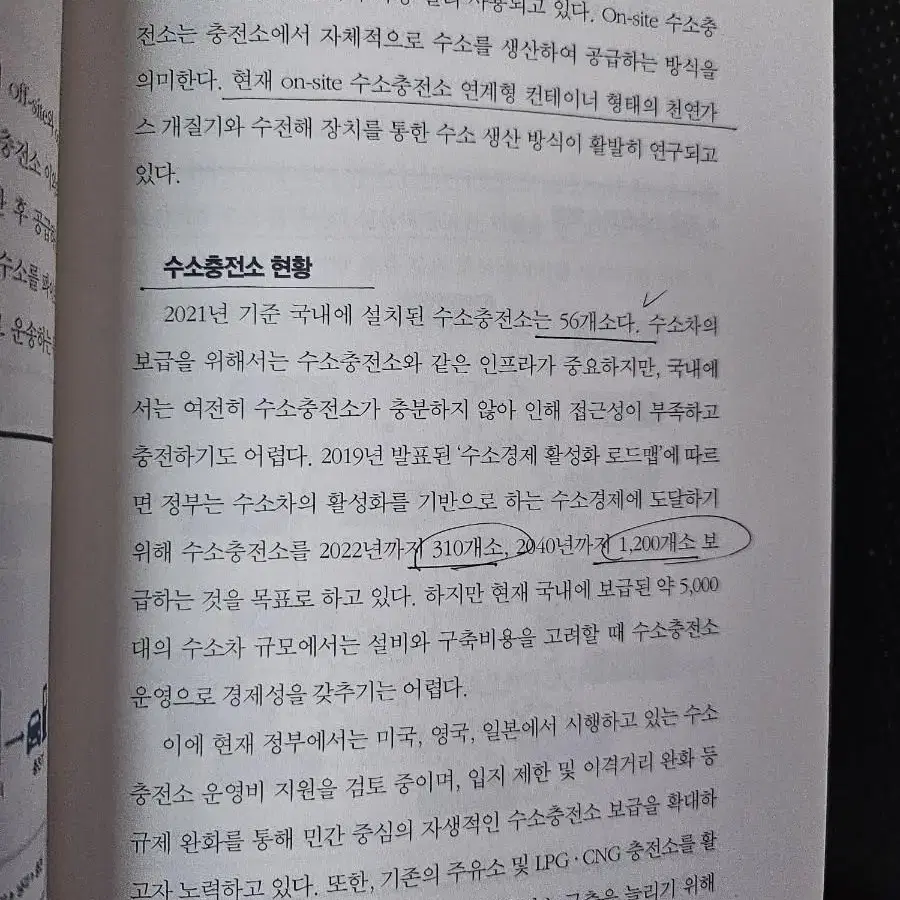 사용되고 있다. On-site 수소충
전소는 충전소에서 자체적으로 수소를 생산하여 공급하는 방식을
의미한다. 현재 on-site 수소충전소 연계형 컨테이너 형태의 천연가
스 개질기와 수전해 장치를 통한 수소 생산 방식이 활발히 연구되고
있다.
수소충전소 현황
2021년 기준 국내에 설치된 수소충전소는 56개소다. 수소차의
보급을 위해서는 수소충전소와 같은 인프라가 중요하지만, 국내에
서는 여전히 수소충전소가 충분하지 않아 인해 접근성이 부족하고
충전하기도 어렵다. 2019년 발표된 ‘수소경제 활성화 로드맵’에 따르
면 정부는 수소차의 활성화를 기반으로 하는 수소경제에 도달하기
위해 수소충전소를 2022년까지 310개소, 2040년까지 1,200개소 보
급하는 것을 목표로 하고 있다. 하지만 현재 국내에 보급된 약 5,000
대의 수소차 규모에서는 설비와 구축비용을 고려할 때 수소충전소
운영으로 경제성을 갖추기는 어렵다.
이에 현재 정부에서는 미국, 영국, 일본에서 시행하고 있는 수소
충전소 운영비 지원을 검토 중이며, 입지 제한 및 이격거리 완화 등
규제 완화를 통해 민간 중심의 자생적인 수소충전소 보급을 확대하
고자 노력하고 있다. 또한, 기존의 주유소 및 LPG·CNG 충전소를 활
구축을 늘리기 위해
Off-site와
충전소
후 공급하
수소를
운송하는